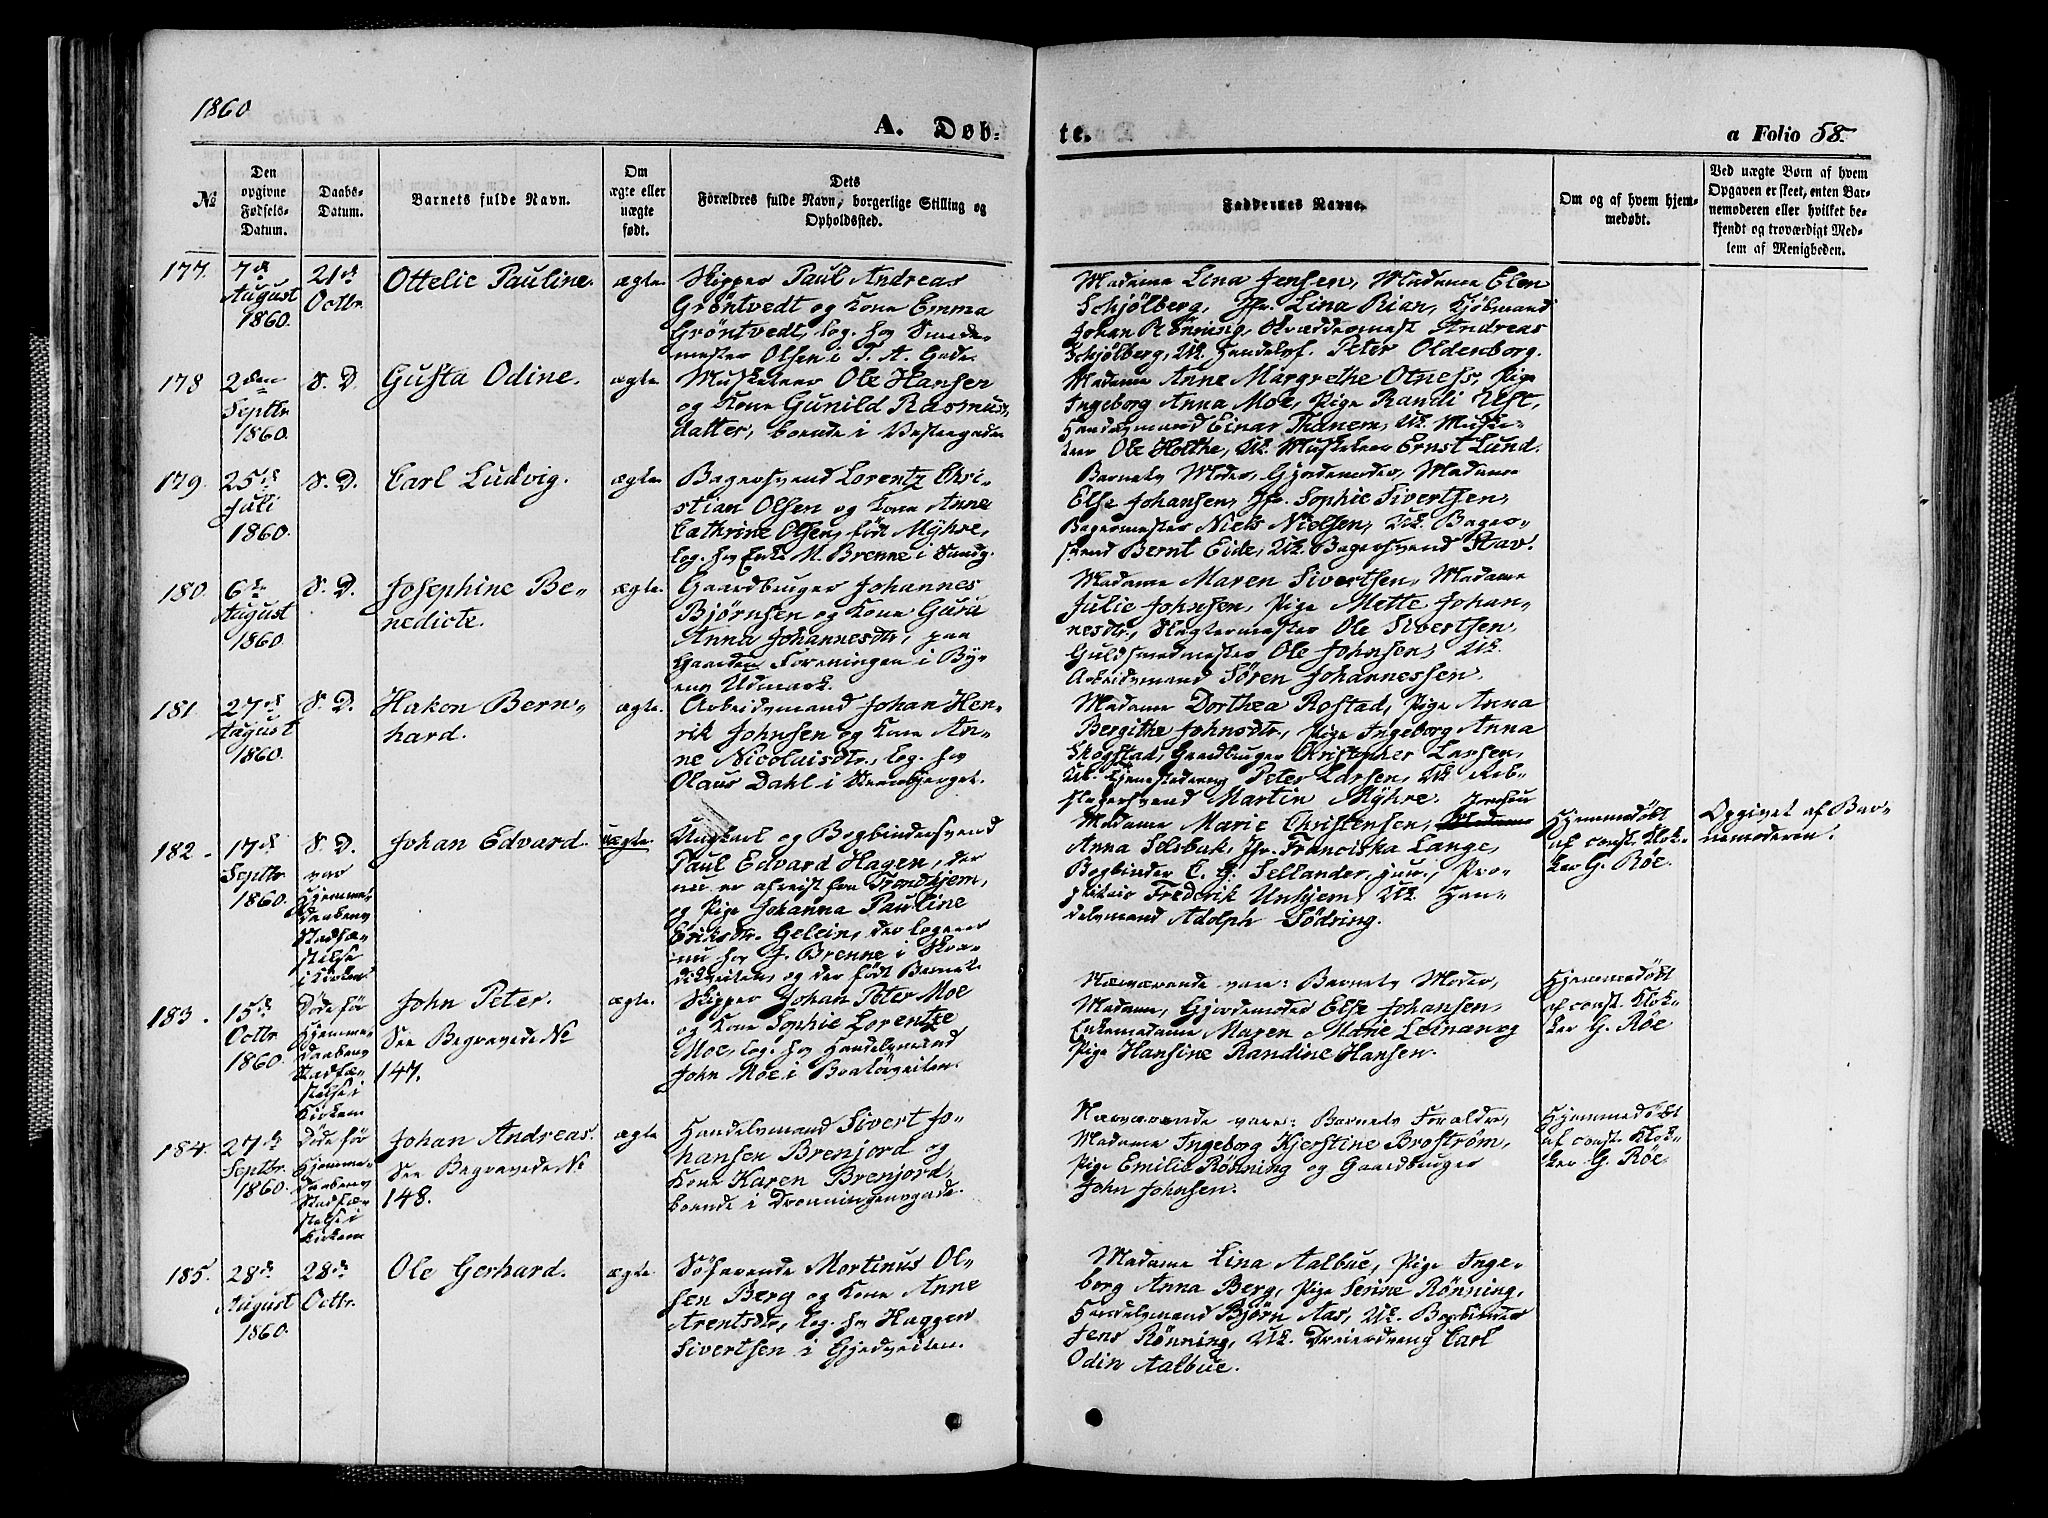 1860
A. Døb-
te.
a Folio 58.
№
Den opgivne Fødsels-Datum.
Daabs-Datum.
Barnets fulde Navn.
Om ægte eller uægte født.
Dets Forældres fulde Navn, borgerlige Stilling og Opholdssted.
Faddernes Navne.
Om og af hvem hjemmedøbt.
Ved uægte Børn af hvem Opgaven er skeet, enten Barnemoderen eller hvilket bekjendt og troværdigt Medlem af Menigheden.
177.
7de
August
1860.
21de
Octbr.
Ottelie Pauline.
ægte.
Skipper Paul Andreas
Gröntvedt og Kone Emma
Gröntvedt, log. hos Smede-
mester Olsen i T. A. Gade.
Madame Lina Jensen, Madame Elen
Schjölberg, Jfr. Lina Rian, Kjöbmand
Johan Rönning, Andreas
Schjölberg, Uk. Handelsf. Peter Oldenborg.
178
2den
Septbr.
1860.
S. D.
Gusta Odine.
ægte.
Musketeer Ole Hansen
og Kone Gunild Rasmus-
datter, boende i Vestergaden
Madame Anne Margrethe Otness, Pige
Ingeborg Anna Moe, Pige Randi Ust,
Handelsmand Einar Thanem, Uk. Muske-
teer Ole Holthe, Uk. Musketeer Ernst Lund.
179.
25de
Juli
1860.
S. D.
Carl Ludvig.
ægte.
Bagersvend Lorentz Chri-
stian Olsen og Kone Anne
Cathrine Olsen, född Mÿhre,
log. hos Enke M. Brenne i Sandg.
Barnets Moder, Gjordemoder, Madame
Else Johansen, Jfr. Sophie Sivertsen,
Bagermester Niels Nielsen, Uk. Bager-
svend Bernt Eide, Uk. Bagersvend Stav.
180.
6te
August
1860.
S. D.
Josephine Be-
nedicte.
ægte.
Gaardbruger Johannes
Bjørnsen og Kone Guru
Anna Johannesdtr., paa
Gaarden Foreningen i By-
ens Udmark.
Madame Maren Sivertsen, Madame
Julie Johnsen, Pige Mette Johan-
nesdtr., Slagtermester Ole Sivertsen,
Guldsmedmester Ole Johnsen, Uk.
Arbeidsmand Sören Johannessen.
181
27de
August
1860.
S. D.
Hakon Bern-
hard.
ægte.
Arbeidsmand Johan Hen-
rik Johnsen og Kone An-
ne Nicolaisdtr., log. hos
Olaus Dahl i Steenbjerget.
Madame Dorthea Rostad, Pige Anna
Bergithe Johnsdtr., Pige Ingeborg Anna
Skogstad, Gaardbruger Christopher Larsen,
Uk. Tjenestedreng Peter Larsen, Uk. Reb-
slagersvend Martin Mÿhre.
182.
17de
Septbr.
1860.
S. D.
var
Hjemme-
daabens
Stadfæ-
stelse
i Kirken.
Johan Edvard.
uægte.
Ungkarl og Bogbindersvend
Paul Edvard Hagen, der
nu er afreist fra Trondhjem,
og Pige Johanna Pauline
Eriksdtr. Gelein, der logerer
nu hos J. Brenne i Skon-
dveiten, og der född Barnet.
Madame Marie Christensen, Madame
Anna Selsbak, Jfr. Franciska Lange,
Bogbinder C. G. Sellander, jun., Pro-
pritair Frederik Unhjem, Uk. Han-
delsmand Adolph Södring.
Hjemmedöbt
af const. Klok-
ker G. Röe.
Opgivet af Bar-
nemoderen.
183.
15de
Octbr.
1860.
Döde för
Hjemme-
daabens
Stadfæ-
stelse i
Kirken
John Peter.
See Begravede No
147.
ægte.
Skipper Johan Peter Moe
og Kone Sophie Lorentze
Moe, log. hos Handelsmand
John Moe i Bratörveiten.
Nærværende vare: Barnets Moder,
Madame, Gjordemoder Else Johansen,
Enkemadame Maren Marie Leinan og
Pige Hansine Randine Hansen.
Hjemmedöbt
af const. Klok-
ker G. Röe
184.
27de
Septbr.
1860.
Döde för
Hjemme-
daabens
Stadfæ-
stelse i
Kirken
Johan Andreas.
See Begravede No
148.
ægte
Handelsmand Sivert Jo-
hansen Brenjord og
Kone Karen Brenjord,
boende i Dronningensgade.
Nærværende vare: Barnets Forældre,
Madame Ingeborg Kjerstine Broström,
Pige Emilie Rönning og Gaardbruger
John Johnsen.
Hjemmedöbt
af const. Klok-
ker G. Röe
185.
28de
August
1860.
28de
Octbr.
Ole Gerhard.
ægte.
Söfarende Martinus Ol-
sen Berg og Kone Anne
Arentsdtr., log. hos Haggen
Sivertsen i Gjedveiten.
Madame Lina Aalbue, Pige Inge-
borg Anna Berg, Pige Serine Rönning,
Handelsmand Björn Aas, Uk. Bogbinder
Jens Rönning, Uk. Dreierdreng Carl
Odin Aalbue.